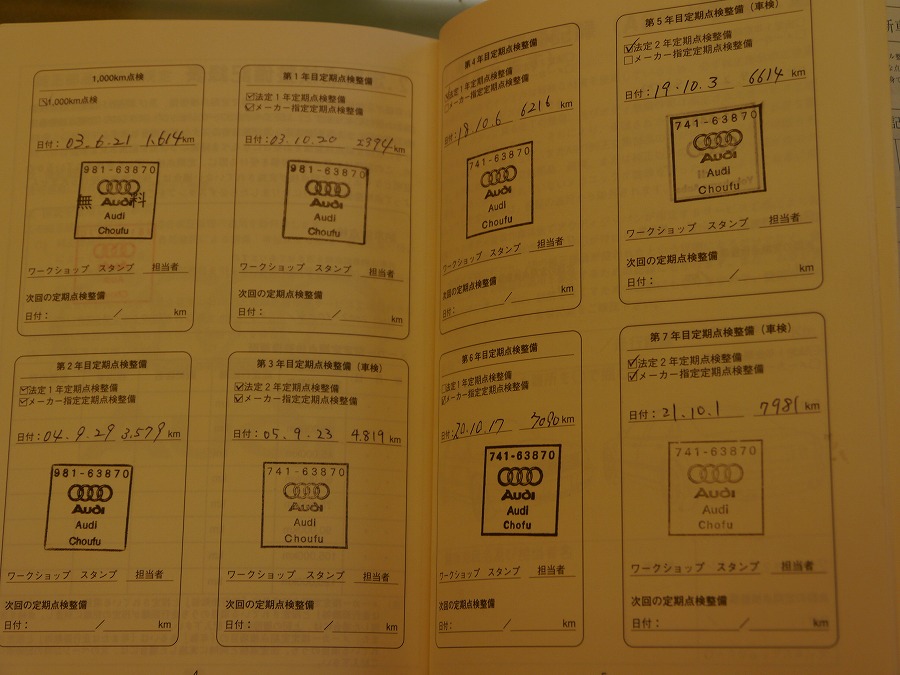 1,000km点検
☑1,000km点検
日付：03.6.21 1.614km
981-63870
Audi
無料
Audi
Choufu
ワークショップ スタンプ 担当者
次回の定期点検整備
日付： ／ km
第1年目定期点検整備
☑法定1年定期点検整備
☑メーカー指定定期点検整備
日付：03.10.20 2394km
981-63870
Audi
Audi
Choufu
ワークショップ スタンプ 担当者
次回の定期点検整備
日付： ／ km
第2年目定期点検整備
☑法定1年定期点検整備
☑メーカー指定定期点検整備
日付：04.9.29 3.579km
981-63870
Audi
Audi
Choufu
ワークショップ スタンプ 担当者
次回の定期点検整備
日付： ／ km
第3年目定期点検整備（車検）
☑法定2年定期点検整備
☑メーカー指定定期点検整備
日付：05.9.23 4.819km
741-63870
Audi
Audi
Choufu
ワークショップ スタンプ 担当者
次回の定期点検整備
日付： ／ km
第4年目定期点検整備
☑法定1年定期点検整備
□メーカー指定定期点検整備
日付：18.10.6 6216km
741-63870
Audi
Audi
Choufu
ワークショップ スタンプ 担当者
次回の定期点検整備
日付： ／ km
第5年目定期点検整備（車検）
☑法定2年定期点検整備
□メーカー指定定期点検整備
日付：19.10.3 6614km
741-63870
Audi
Audi
Choufu
ワークショップ スタンプ 担当者
次回の定期点検整備
日付： ／ km
第6年目定期点検整備
□法定1年定期点検整備
☑メーカー指定定期点検整備
日付：20.10.17 7090km
741-63870
Audi
Audi
Chofu
ワークショップ スタンプ 担当者
次回の定期点検整備
日付： ／ km
第7年目定期点検整備（車検）
☑法定2年定期点検整備
☑メーカー指定定期点検整備
日付：21.10.1 7981km
741-63870
Audi
Audi
Chofu
ワークショップ スタンプ 担当者
次回の定期点検整備
日付： ／ km